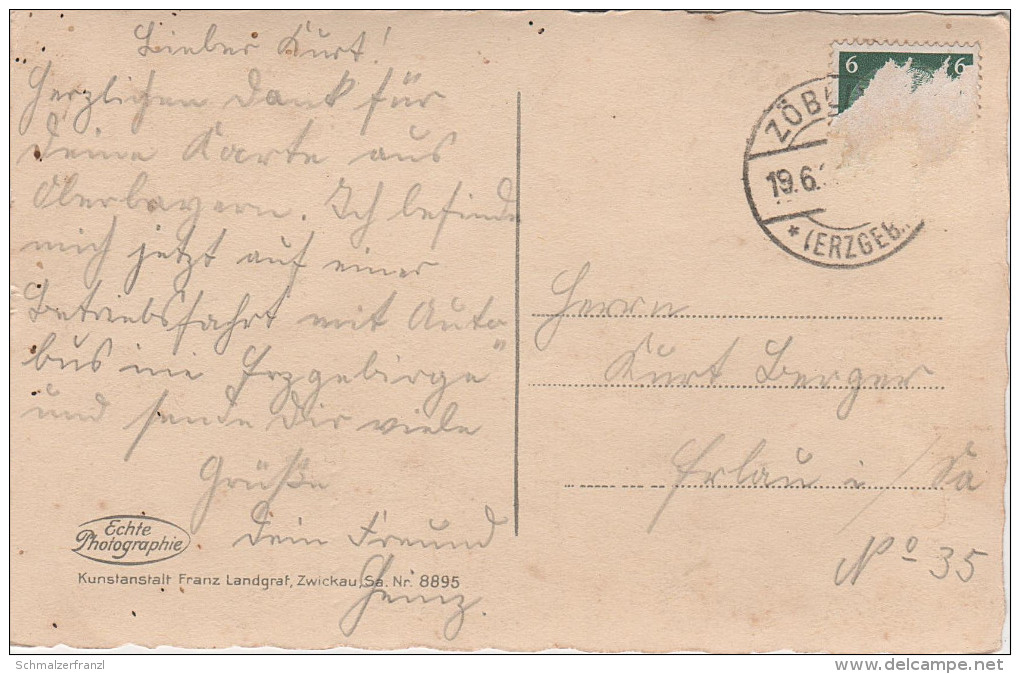 Lieber Kurt!
Herzlichen Dank für
Deine Karte aus
Oberbayern. Ich befinde
mich jetzt auf einer
Betriebsfahrt mit Auto
bus im Erzgebirge
und sende Dir viele
Grüße
Dein Freund
Heinz.
Echte
Photographie
Kunstanstalt Franz Landgraf, Zwickau, Sa. Nr. 8895
6 6
19.6.
* (ERZGEB.
Herrn
Kurt Berger
Erlau i/Sa
No 35
Schmalzerfranzl
www.delcampe.net